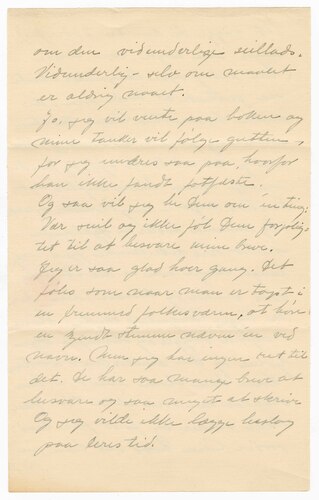 om den vidunderlige seillads.
Vidunderlig – selv om maalet
er aldrig naaet.
Jo, jeg vil vente paa boken og
mine tanker vil følge gutten,
for jeg undres saa paa, hvorfor
han ikke fandt fotfæste.
Og saa vil jeg be Dem om en ting:
Vær snil og ikke føl Dem forplig-
tet til at besvare mine breve.
Jeg er saa glad hver gang. Det
føles som naar man er tapt i
en fremmed folkesværm, at høre
en kjendt stemme nævne en ved
navn. Men jeg har ingen ret til
det. De har saa mange breve at
besvare og saa meget at skrive
Og jeg vilde ikke lægge beslag
paa deres tid.